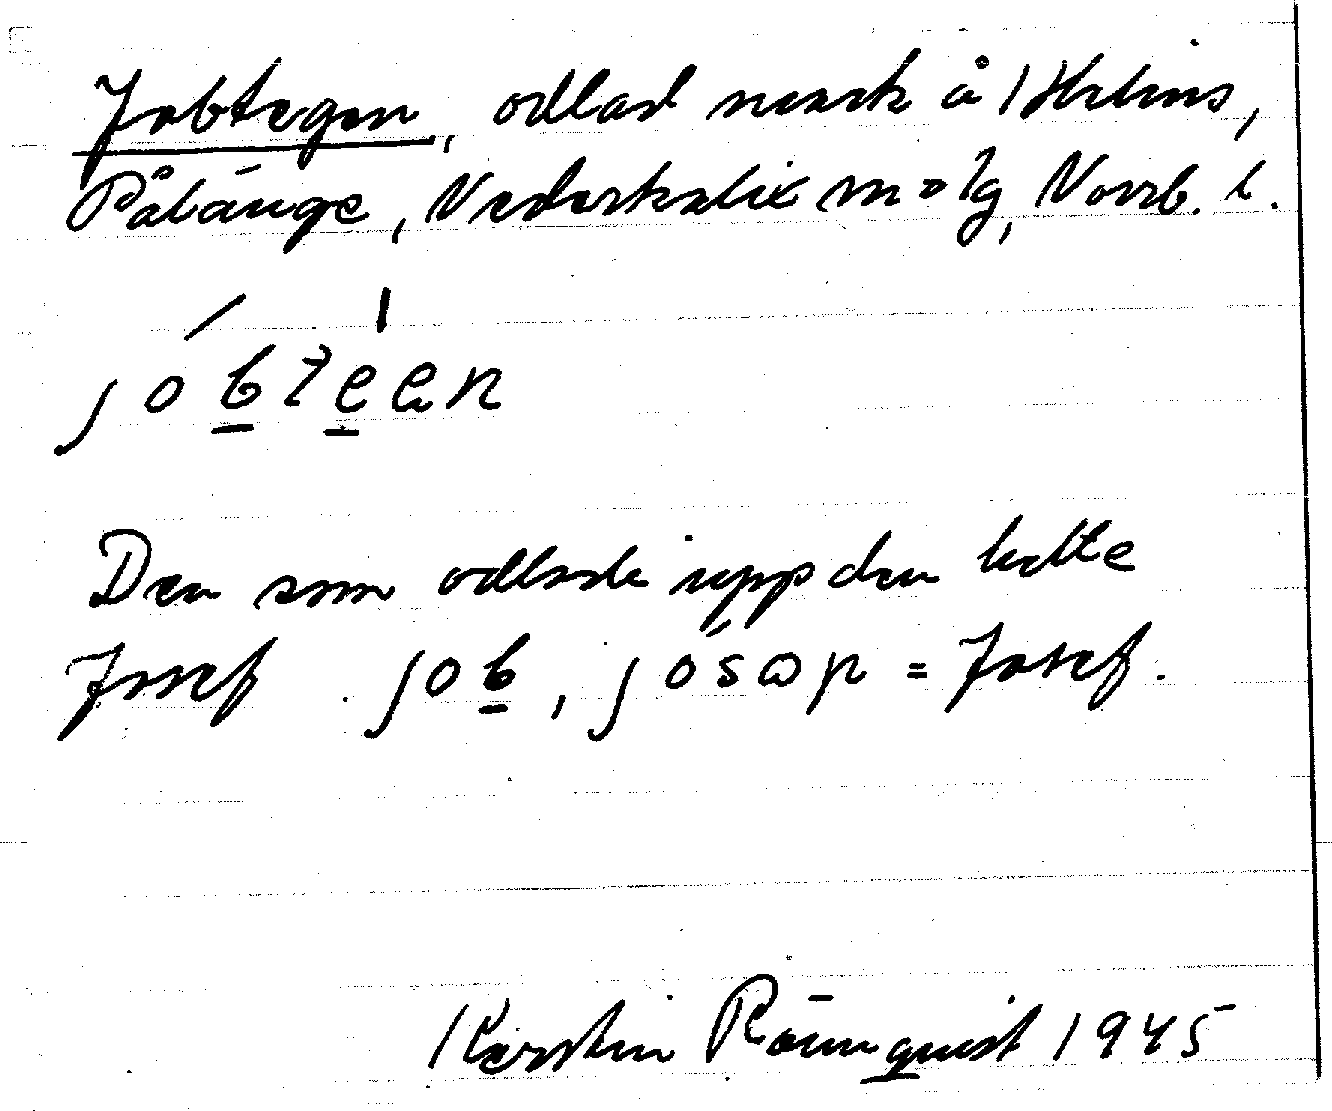 Jobtegen, odlad mark å 1 Helins,
Pålänge, Nederkalix sn o lg, Norrb. l.
jobteen
Den som odlade upp den hette
Josef. job, jósap = Josef.
Kerstin Rönnquist 1945